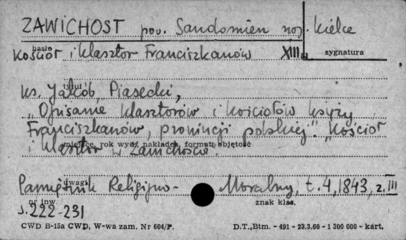 ZAWICHOST pow. Sandomierz woj. Kielce
hasło
Kościół i klasztor Franciszkanów XIII w.
sygnatura
ks. Jakób Piasecki,
"Opisanie klasztorów i kościołów księży
Franciszkanów, prowincji polskiej." Kościół
miejsce, rok wyd. nakładca, format, objętość
i klasztor w Zawichoście
uwagi
Pamiętnik Religijno-Moralny, t. 4, 1843, z. III
nr inw znak klas.
s. 222-231
CWD B-15a CWD, W-wa zam. Nr 604/P. D.T.,Btm. - 491 - 23.3.60 - 1 300 000 - kart.